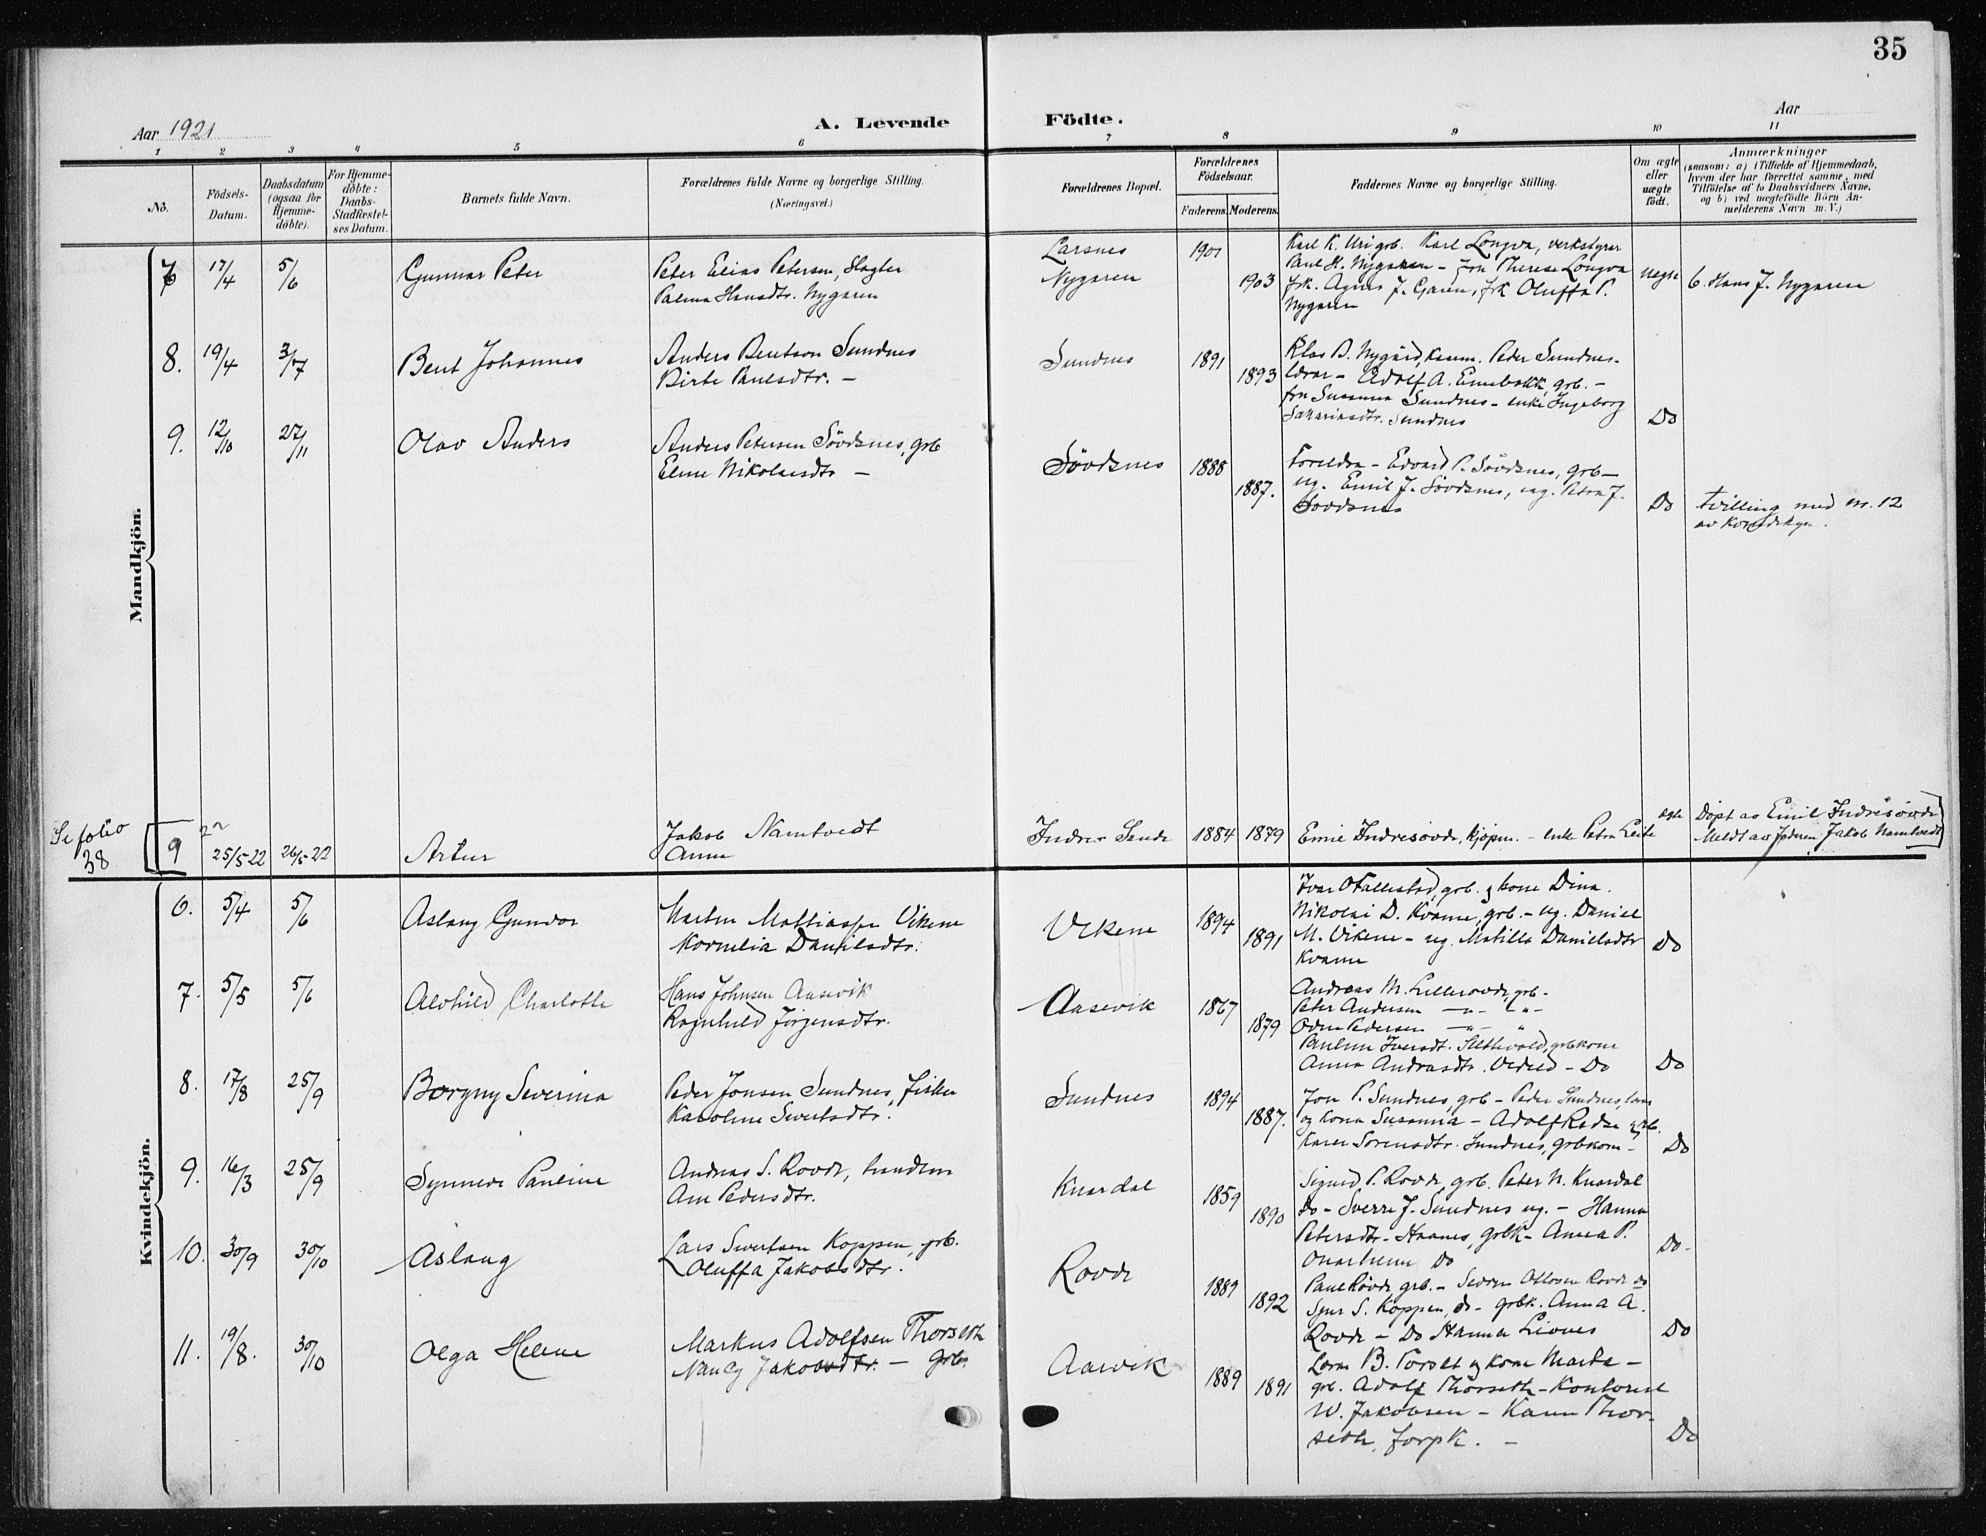 35
Aar 1921
A. Levende
Födte.
Aar
1 2 3 4 5 6 7 8 9 10 11
No.
Födsels-
Datum.
Daabsdatum
(ogsaa for
Hjemme-
döbte).
For Hjemme-
döbte:
Daabs-
Stadfæstel-
ses Datum.
Barnets fulde Navn.
Forældrenes fulde Navne og borgerlige Stilling.
(Næringsvei.)
Forældrenes Bopæl.
Forældrenes
Födselsaar.
Faderens. Moderens.
Faddernes Navne og borgerlige Stilling.
Om ægte
eller
uægte
födt.
Anmærkninger
(saasom: a) i Tilfælde af Hjemmedaab,
hvem der har forrettet samme, med
Tilföielse af to Daabsvidners Navne,
og b) ved uægtefödte Börn An-
melderens Navn m.V.)
Mandkjön.
7 17/4 5/6 Gunnar Peter
Peter Elias Petersen, Slagter
Palma Hansdtr. Nygaren
Larsnes
Nygaren
1901
1903
Karl K. Uri grb. Karl Longva, verkstyrar
Paul H. Nygaren - Fru Therese Longva
frk. Agnes J. Garen, frk Oluffa P.
Nygaren
uegte
6. Hans J. Nygaren
8. 19/4 3/7 Bent Johannes
Anders Bentson Sundnes
Birte Paulsdtr. -
Sundnes
1891
1893
Klas B. Nygård, Peder Sundnes-
lærar - Adolf A. grb. -
fru Susanna Sundnes - enke Ingeborg
Sakariasdtr. Sundnes
Do
9. 12/10 27/11 Olav Anders
Anders Petersen Sövdsnes, grb
Eline Nikolaisdtr -
Sövdsnes
1888
1887.
Foreldra - Edvard P. Sövdsnes, grb -
ug. Emil J. Sövdsnes, ug. Petra J.
Sovdsnes
Do
tvilling med nr. 12
av
Se folio
38
9 25/5-22 26/5-22 Artur
Jakob Namtvedt
Anna
Indre Sande
1884 1879
Emil Indresövde, kjöpm. - enke Petra Leite
egte
Döpt av Emil Indresövde
Meldt av faderen, Jakob Namtvedt
Kvindekjön.
6. 5/4 5/6 Aslaug Gunvor
Morten Mattiassen Vikene
Kornelia Danielsdtr.
Vikene
1894
1891
Ivar O Fallestad, grb. g kone Dina.
Nikolai D. Kvame, grb. - ug. Daniel
M. Vikene - ug. Matilla Danielsdtr
Kvame
Do
7. 5/5 5/6 Alvhild Charlotte
Hans Johnsen Aasevik
Ragnhild Jörgensdtr.
Aasevik
1867
1879
Andreas M. Lillesovde, grb-
Peter Andersen -"-
Odin Pedersen -"-
Pauline Iversdt. grbkone
Anna Andrasdtr. - Do
Do
8. 17/8 25/9 Borgny Severina
Peder Jonsen Sundnes, fisker
Karoline Sivertsdtr.
Sundnes
1894
1887.
Jon P. Sundnes, grb - Peder Sundnes, lærar
og kona Susanna - Adolf grb.
Karen Sorensdtr. Sundnes, grbkone -
Do
9. 16/3 25/9 Synneve Pauline
Andreas S. Rovde,
Ane Pedersdtr.
Knardal
1859
1890
Sigurd P. Rovde, grb. Peter N. Knardal
do - Sverre J. Sundnes ug. - Hanna
Petersdtr - Haanes, grbk - Anna P.
Do
Do -
10. 30/9 30/10 Aslaug
Lars Sivertsen Koppen, grb.
Oluffa Jakobsdtr.
Rovde
1889
1892
Paul Rövde grb. - Ottosen Rovde do
S. Koppen, do - grbk. Anna A.
Rovde - Do Hanna
Do
11. 19/8. 30/10 Olga Helene
Markus Adolfsen Thorseth
Nancy Jakobsdtr. - grb.
Aasvik
1889
1891
B. Torset og kone Marta -
grb. Adolf Thorseth - Kontorist
W. Jakobsen - Thor-
seth,
Do